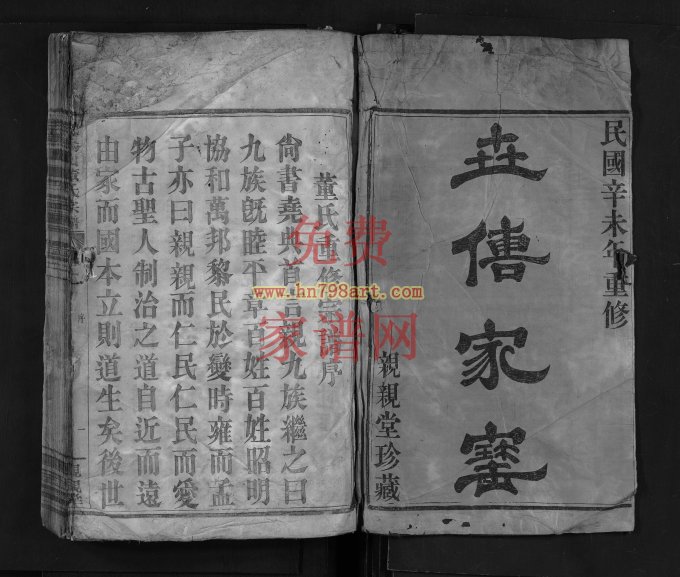 民國辛未年重修
世傳家寶
親親堂珍藏
董氏重修宗譜序
尙書堯典首言親九族繼之曰
九族旣睦平章百姓百姓昭明
協和萬邦黎民於變時雍而孟
子亦曰親親而仁民仁民而愛
物古聖人制治之道自近而遠
由家而國本立則道生矣後世
免费
www.hn798art.com
家谱网